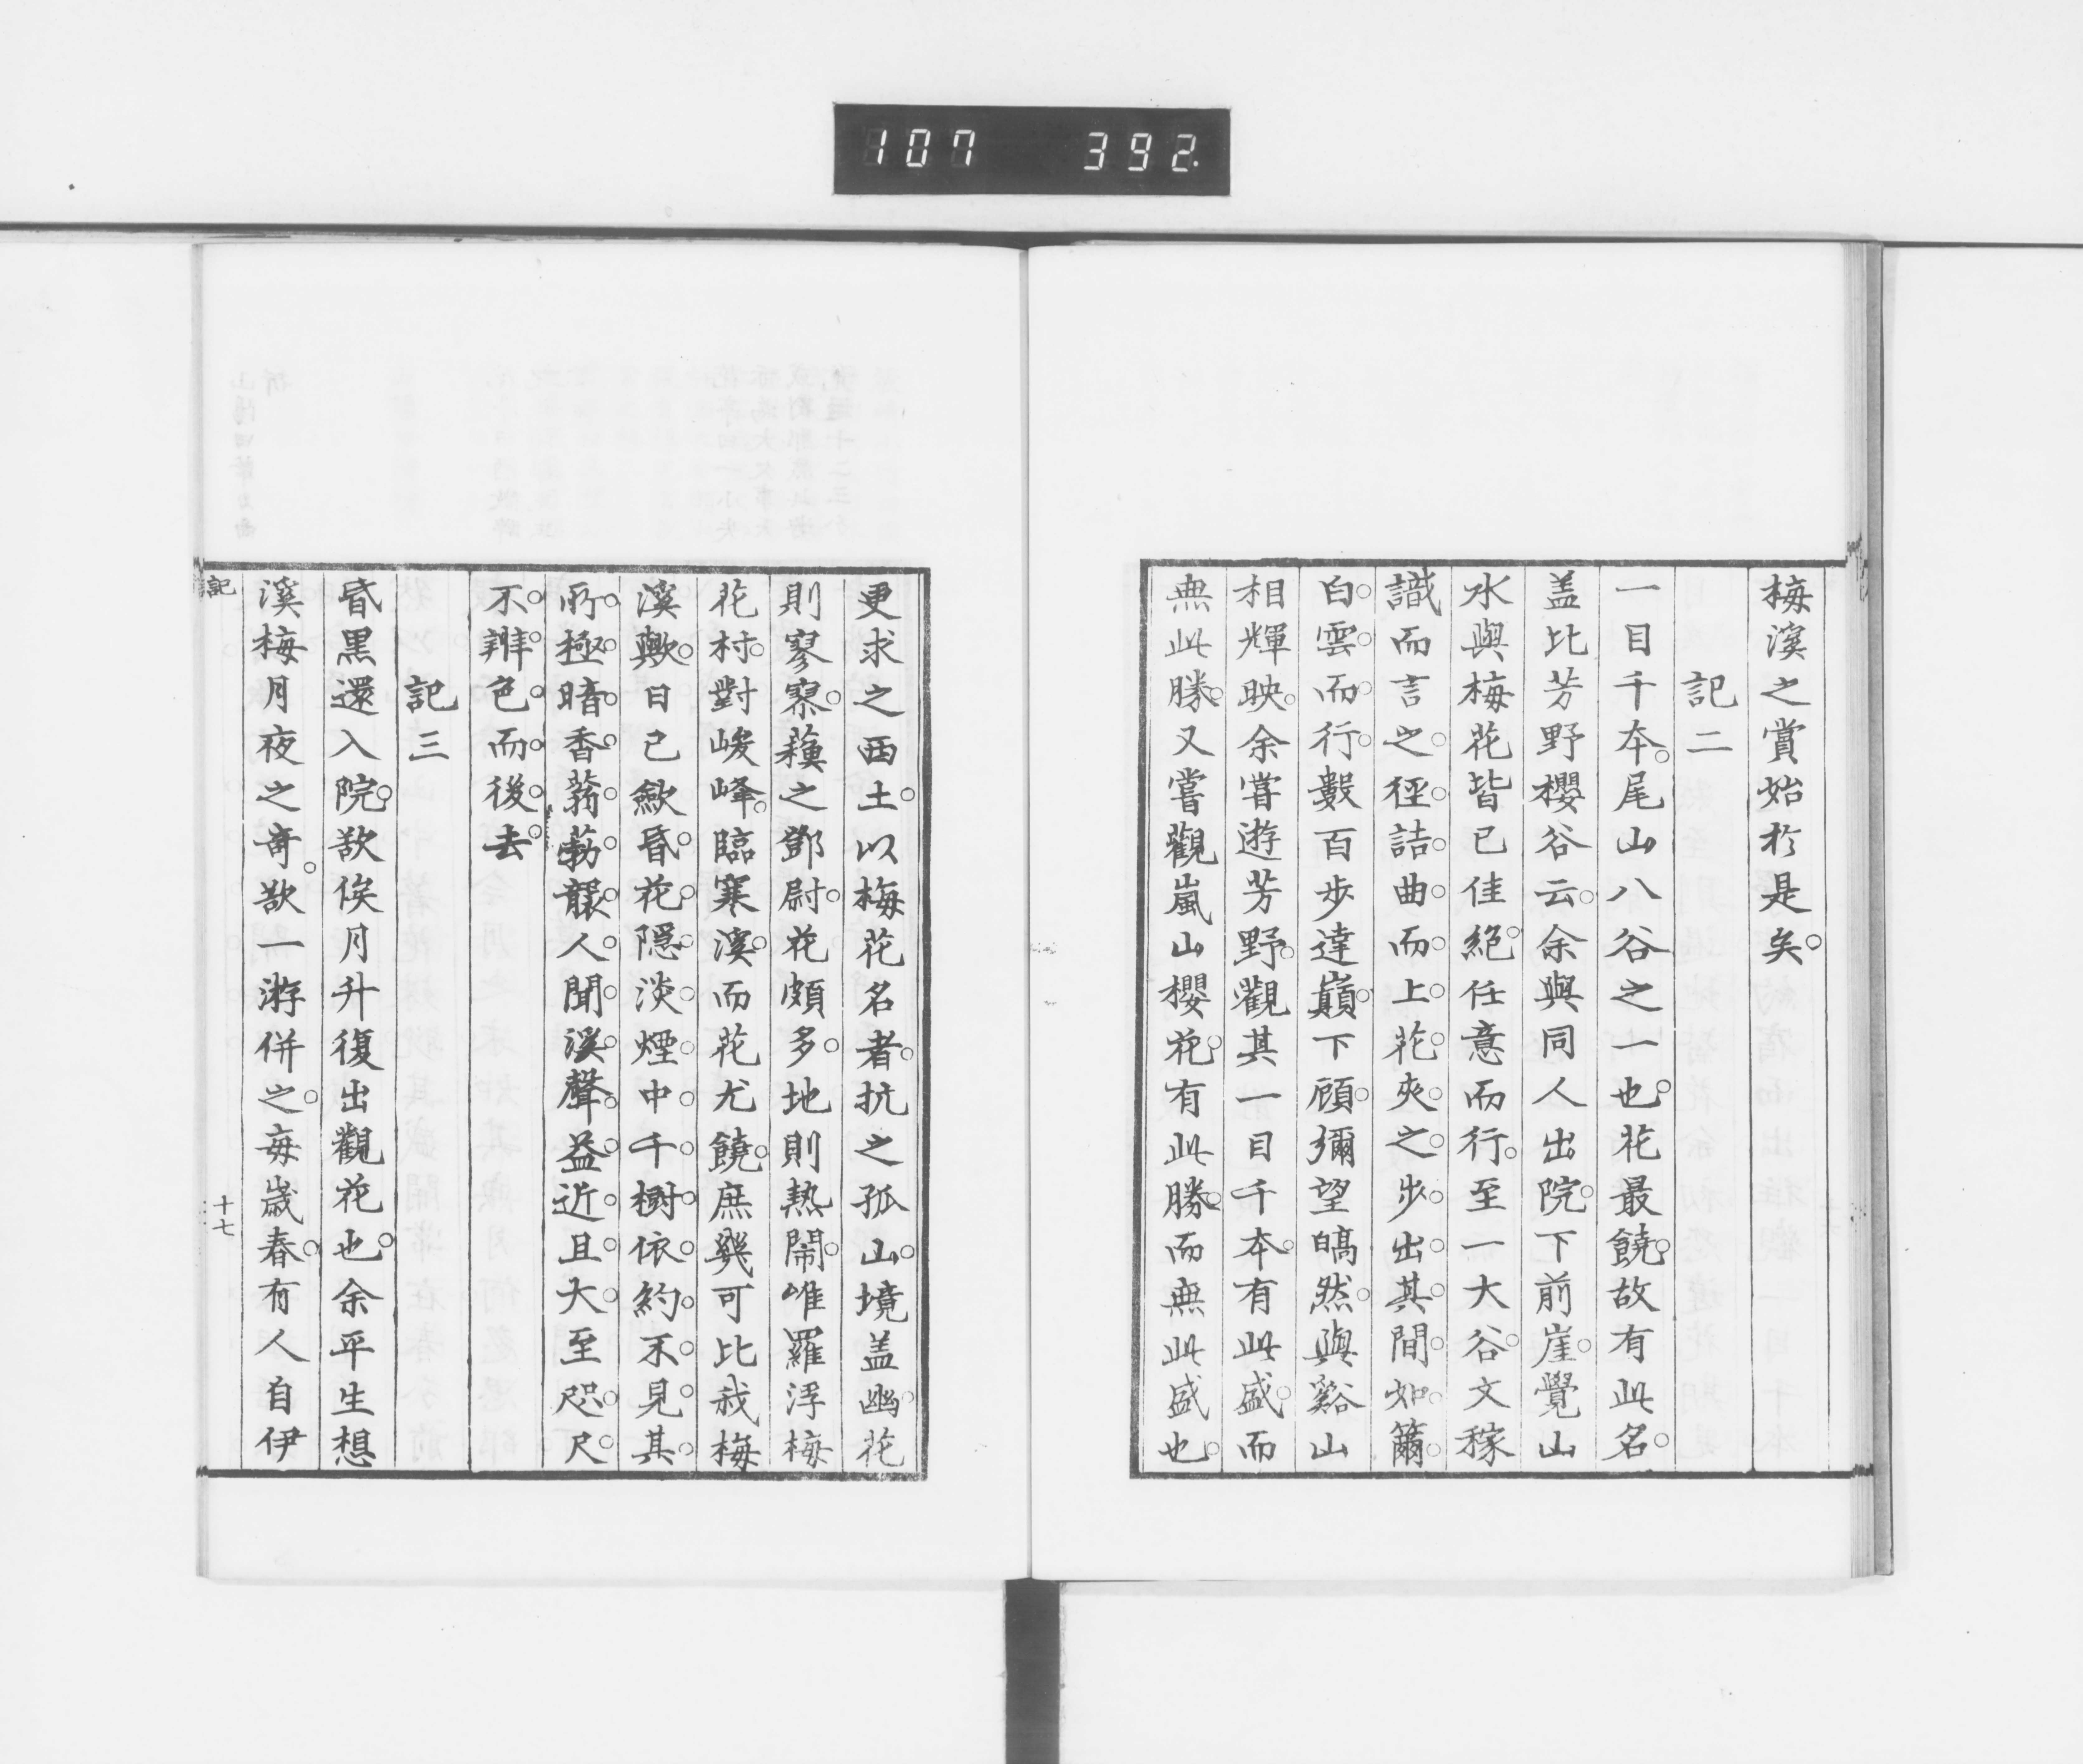 107 392.
梅溪之賞始於是矣。
記二
一目千本。尾山八谷之一也。花最饒。故有此名。
盖比芳野櫻谷云。余與同人出院。下前崖。覺山
水與梅花皆已佳絶。任意而行。至一大谷。文稼
識而言之。徑詰曲而上。花夾之。步出其間。如籋
白雲而行。數百步達巔。下顧彌望皜然。與谿山
相輝映。余嘗遊芳野。觀其一目千本。有此盛。而
無此勝。又嘗觀嵐山櫻花。有此勝。而無此盛也。
更求之西土。以梅花名者。抗之孤山。境盖幽。花
則寥寥。蘓之鄧尉。花頗多。地則熱鬧。唯羅浮梅
花村。對峻峰。臨寒溪。而花尤饒。庶幾可比我梅
溪歟。日已歛昏。花隱淡煙中。千樹依約。不見其
所極。暗香蓊勃襲人。聞溪聲益近且大。至咫尺
不辨色而後去。
記三
昏黑還入院。欲俟月升復出觀花也。余平生想
溪梅月夜之奇。欲一游併之。每歲春。有人自伊
記
十七